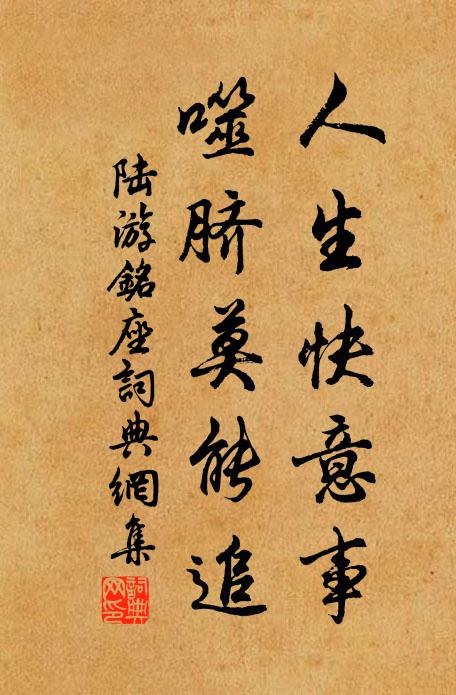 人生快意事
噬脐莫能追
陆游銘座詞典網集
詞典网印